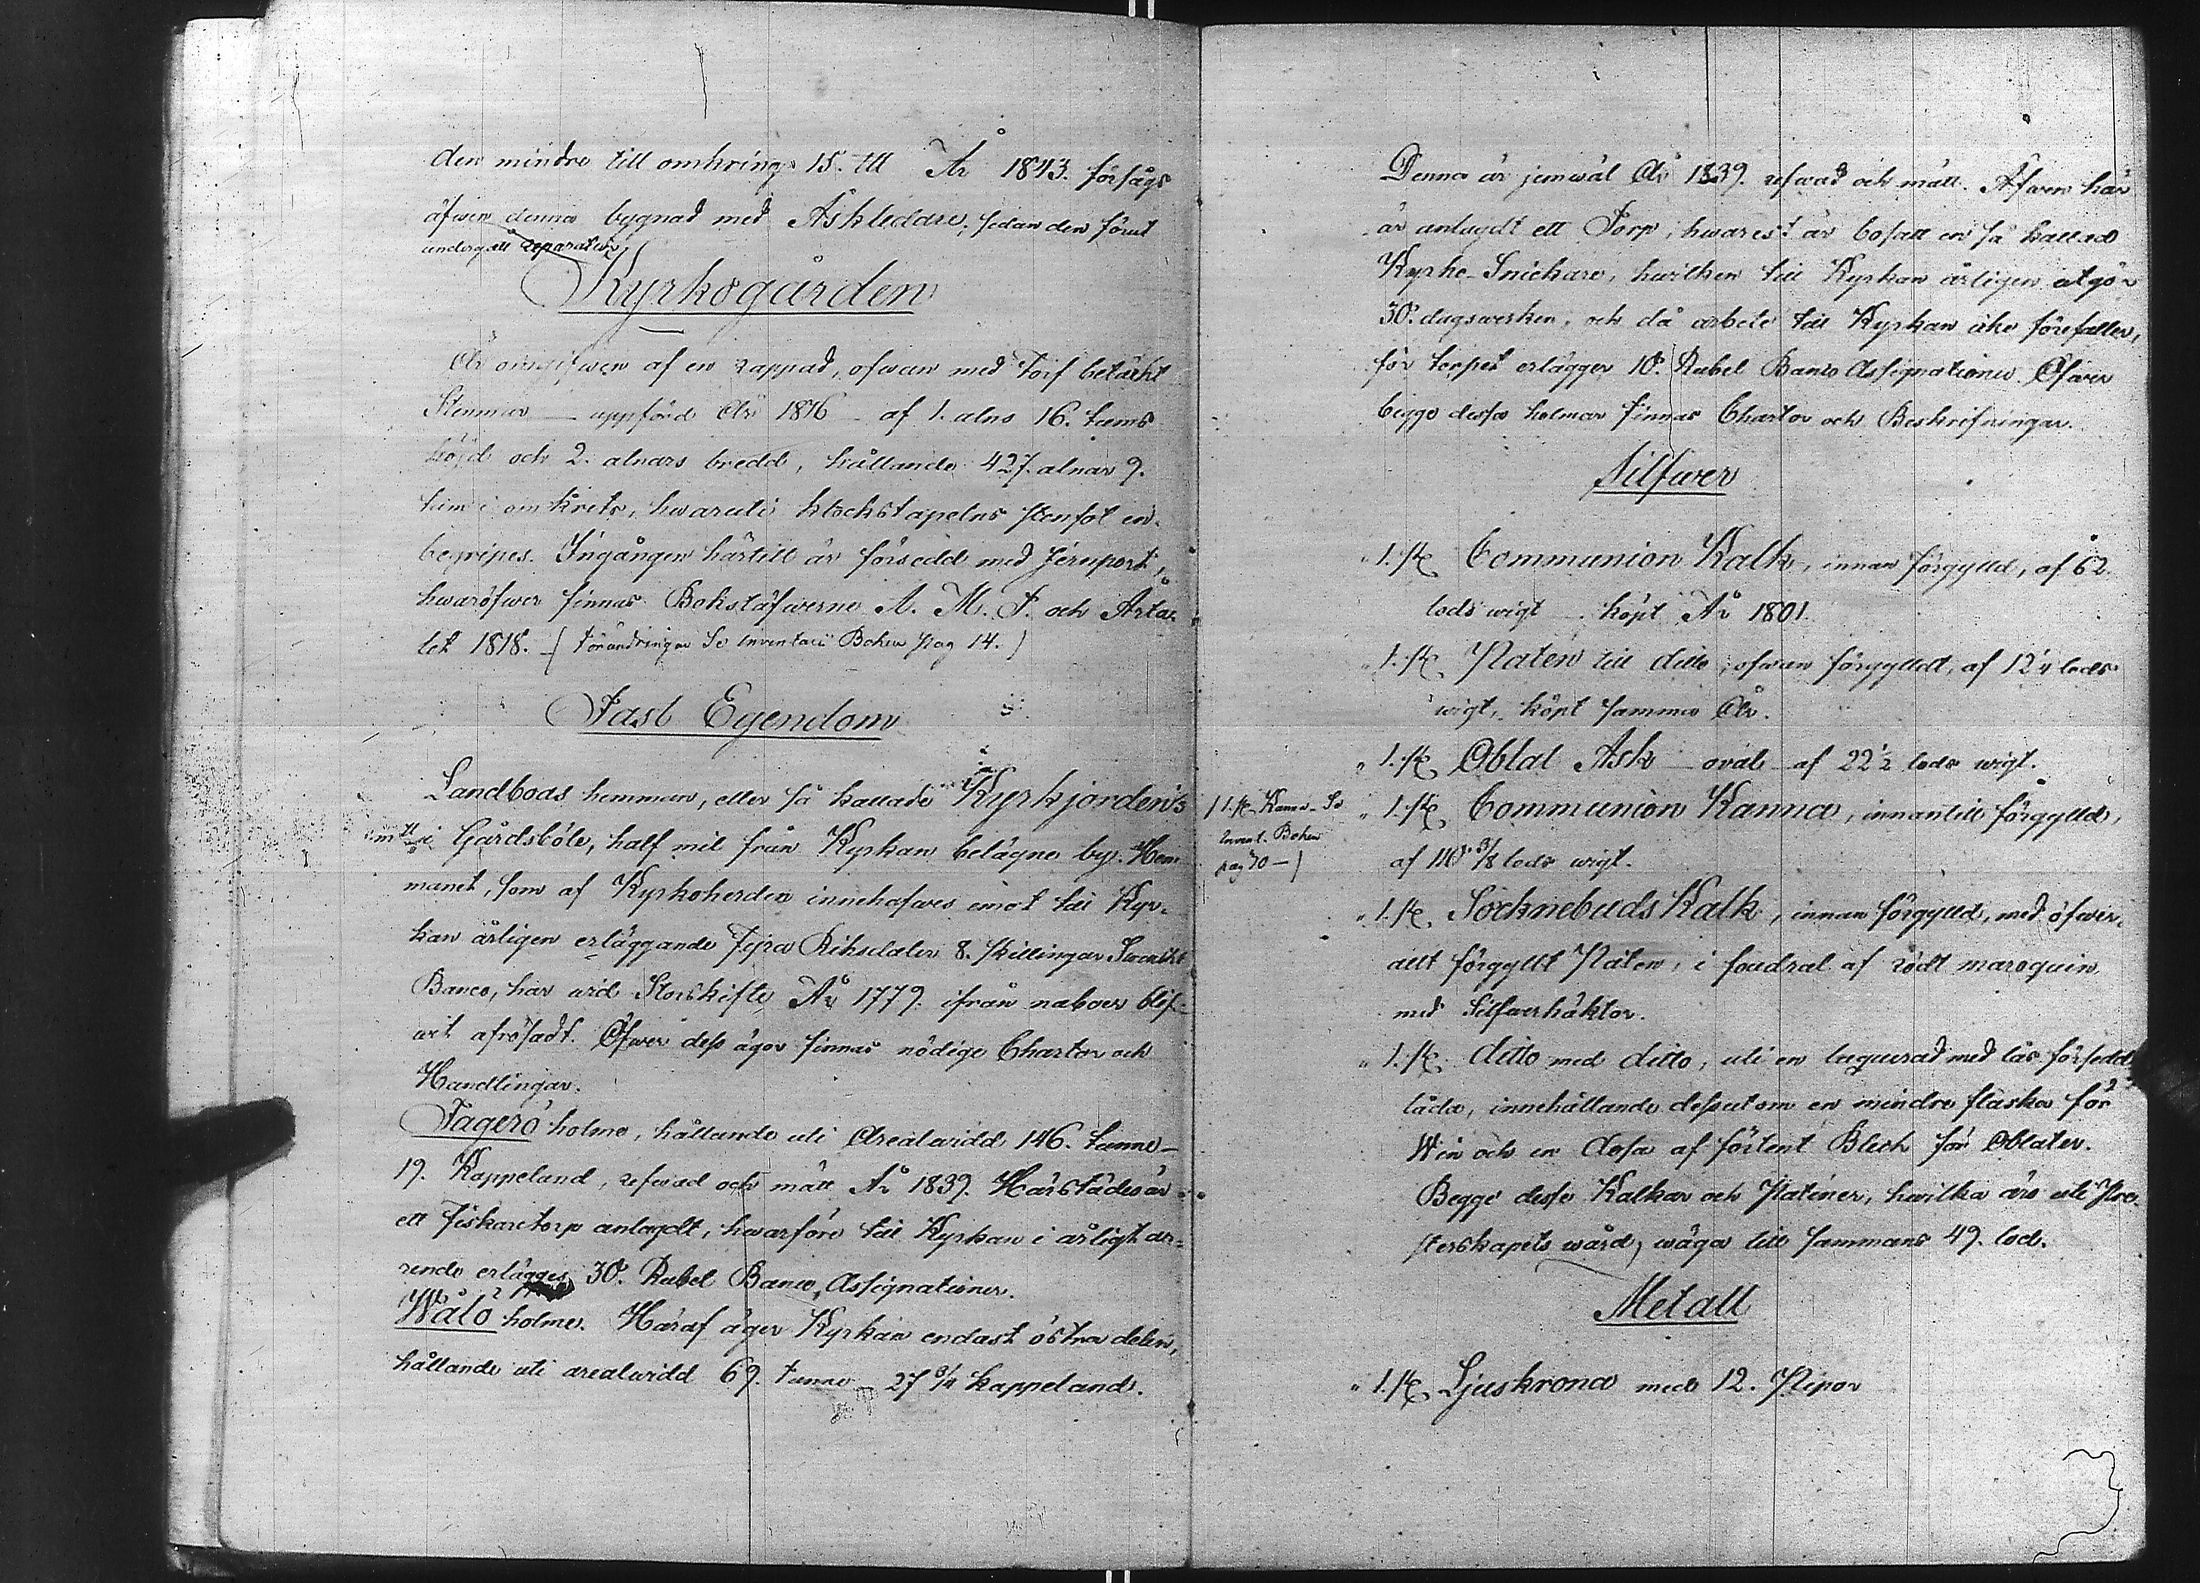 den mindre till omkring 15. ttl År 1843. försågs
äfwen denna bygnad med Åskledare, sedan den först
undergått reparation
Kyrkogården
Är omgifwen af en rappad, ofwan med torf betäckt
Stenmur – uppförd År 1816 – af 1. alns 16. tums
höjd och 2. alnars bredd, hållande 427. alnar 9.
tum i omkrets, hwaruti klockstapelns stenfot in-
begripes. Ingången härtill är försedd med Jernport,
hwaröfwer finnas Bokstäfwerne A. M. I. och Årta-
let 1818. – (Förändringar Se Inventarii Boken pag 14.)
Fast Egendom
Landboas hemman, eller så kallade Kyrkjorden
i Gårdsböle, half mil från Kyrkan belägne by. Hem-
manet, som af Kyrkoherden innehafwes emot till Kyr-
kan årligen erläggande Fyra Riksdaler 8. skillingar Swenskt
Banco, har wid Storskifte År 1779. ifrån naboer blif-
wit afrösadt. Öfwer dess ägor finnas nödige Chartor och
Handlingar.
Fagerö holme, hållande uti Arealwidd 146. tunne-
19. Kappeland, refwad och mätt År 1839. Härstädes är
ett fiskaretorp anlagdt, hwarföre till Kyrkan i årligt ar-
rende erlägges 30. Rubel Banco Assignationer.
Wålö holme. Häraf äger Kyrkan endast östra delen,
hållande uti arealwidd 69. tunne 27 3/4 kappeland.
Denna är jemwäl År 1839. refwad och mätt. Äfwen här
är anlagdt ett Torp, hwarest är bosatt en så kallad
Kyrko-Snickare, hwilken till Kyrkan årligen utgör
30. dagswerken, och då arbete till Kyrkan icke förefaller,
för torpet erlägger 10. Rubel Banco Assignationer. Öfwer
begge dessa holmar finnas Chartor och Beskrifningar.
Silfwer
1. st. Communion Kalk, innan förgylld, af 62
lods wigt – köpt År 1801.
1. st. Paten till ditto, ofwan förgylldt, af 12 1/4 lods
wigt, köpt samma År.
" 1. st. Oblat Ask – oval – af 22 1/2 lods wigt.
(1. st. Kanna – Se
Invent. Boken
pag 70 –)
" 1. st. Communion Kanna, innantill förgylld,
af 110 3/8 lods wigt.
" 1. st. Socknebuds Kalk, innan förgylld, med öfwer-
allt förgylldt Paten, i foudral af rödt maroquin
med Silfwerhäktor.
" 1. st. ditto med ditto, uti en laquerad med lås försedd
låda, innehållande dessutom en mindre flaska för
Win och en dosa af förtent Bleck för Oblater.
Begge desse Kalkar och Patener, hwilka äro uti Pre-
sterskapets wård, wäga till sammans 49. lod.
Metall
" 1. st. Ljuskrona med 12. Pipor